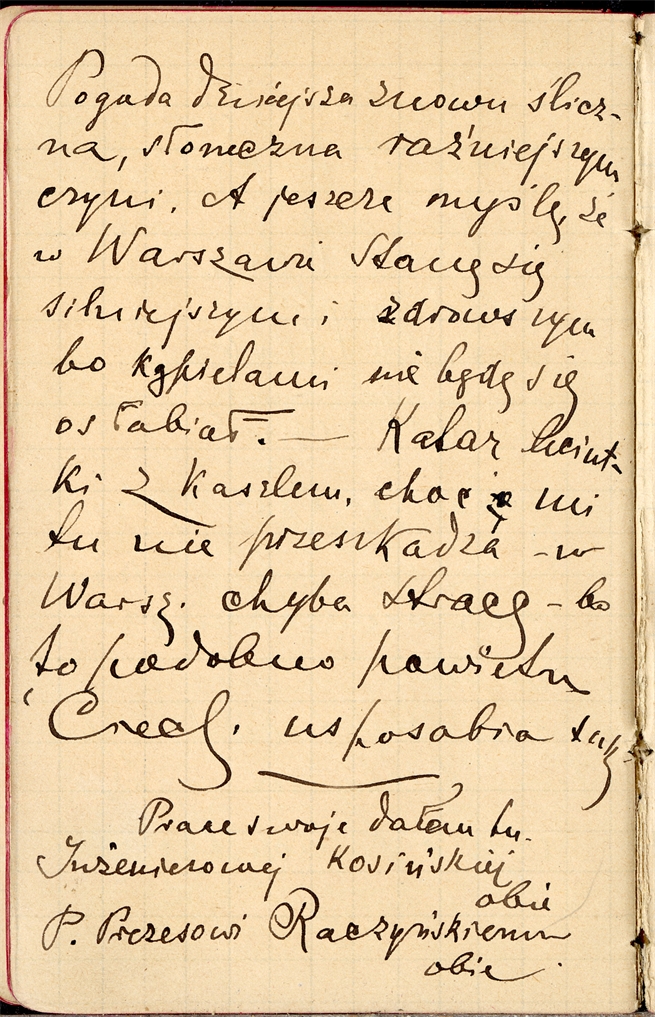 Pogoda dzisiejsza znowu ślicz-
na, słoneczna raźniejszym
czyni. A jeszcze myślę, że
w Warszawie stanę się
silniejszym i zdrowszym
bo kąpielami nie będę się
osłabiał. — Katar
ki z kaszlem, choć mi
tu nie przeszkadza - w
Warsz. chyba stracę - bo
to podobno powietrze
Ciech. usposabia tak
Prace swoje dałem tu.
Inżenierowej Kosińskiej
obie
P. Prezesowi Raczyńskiemu
obie.